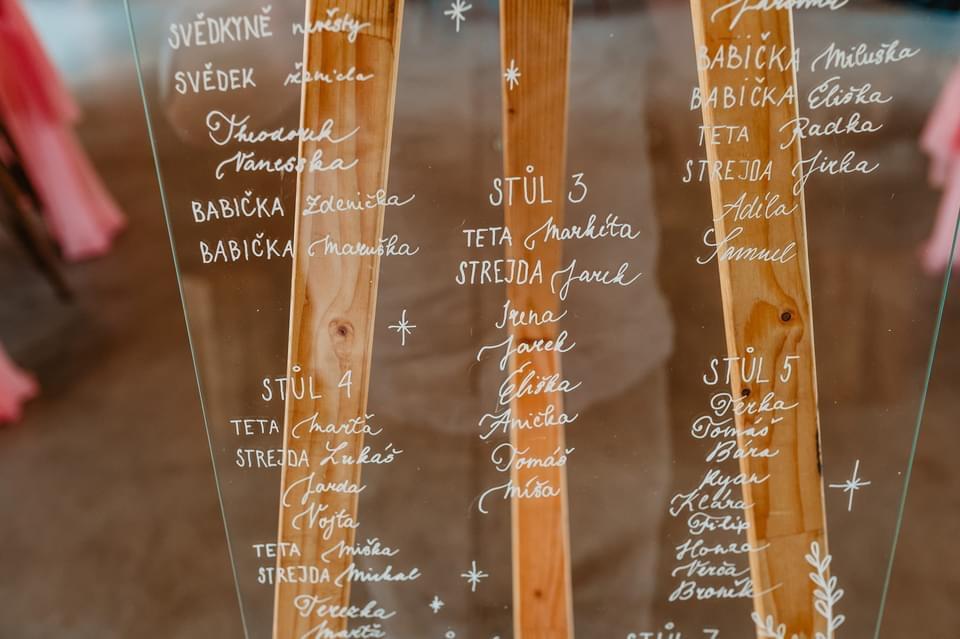 SVĚDKYNĚ nevěsty
SVĚDEK ženicha
Theodorek
Vanesska
BABIČKA Zdenička
BABIČKA Maruška
STŮL 4
TETA Marťa
STREJDA Lukáš
Jarda
Vojta
TETA Miška
STREJDA Michal
Terezka
Marťa
STŮL 3
TETA Markéta
STREJDA Jarek
Irena
Jarek
Eliška
Anička
Tomáš
Míša
Jaromír
BABIČKA Miluška
BABIČKA Eliška
TETA Radka
STREJDA Jirka
Adéla
Samuel
STŮL 5
Terka
Tomáš
Bára
Ryan
Klára
Filip
Honza
Verča
Broněk
STŮL 7